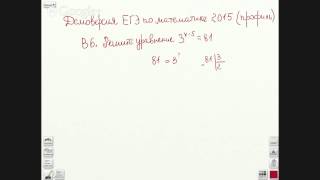 Демоверсия ЕГЭ по математике 2015 (профиль)
B6. Решите уравнение 3^{x-5} = 81
81 = 3^? 81 | 3
2